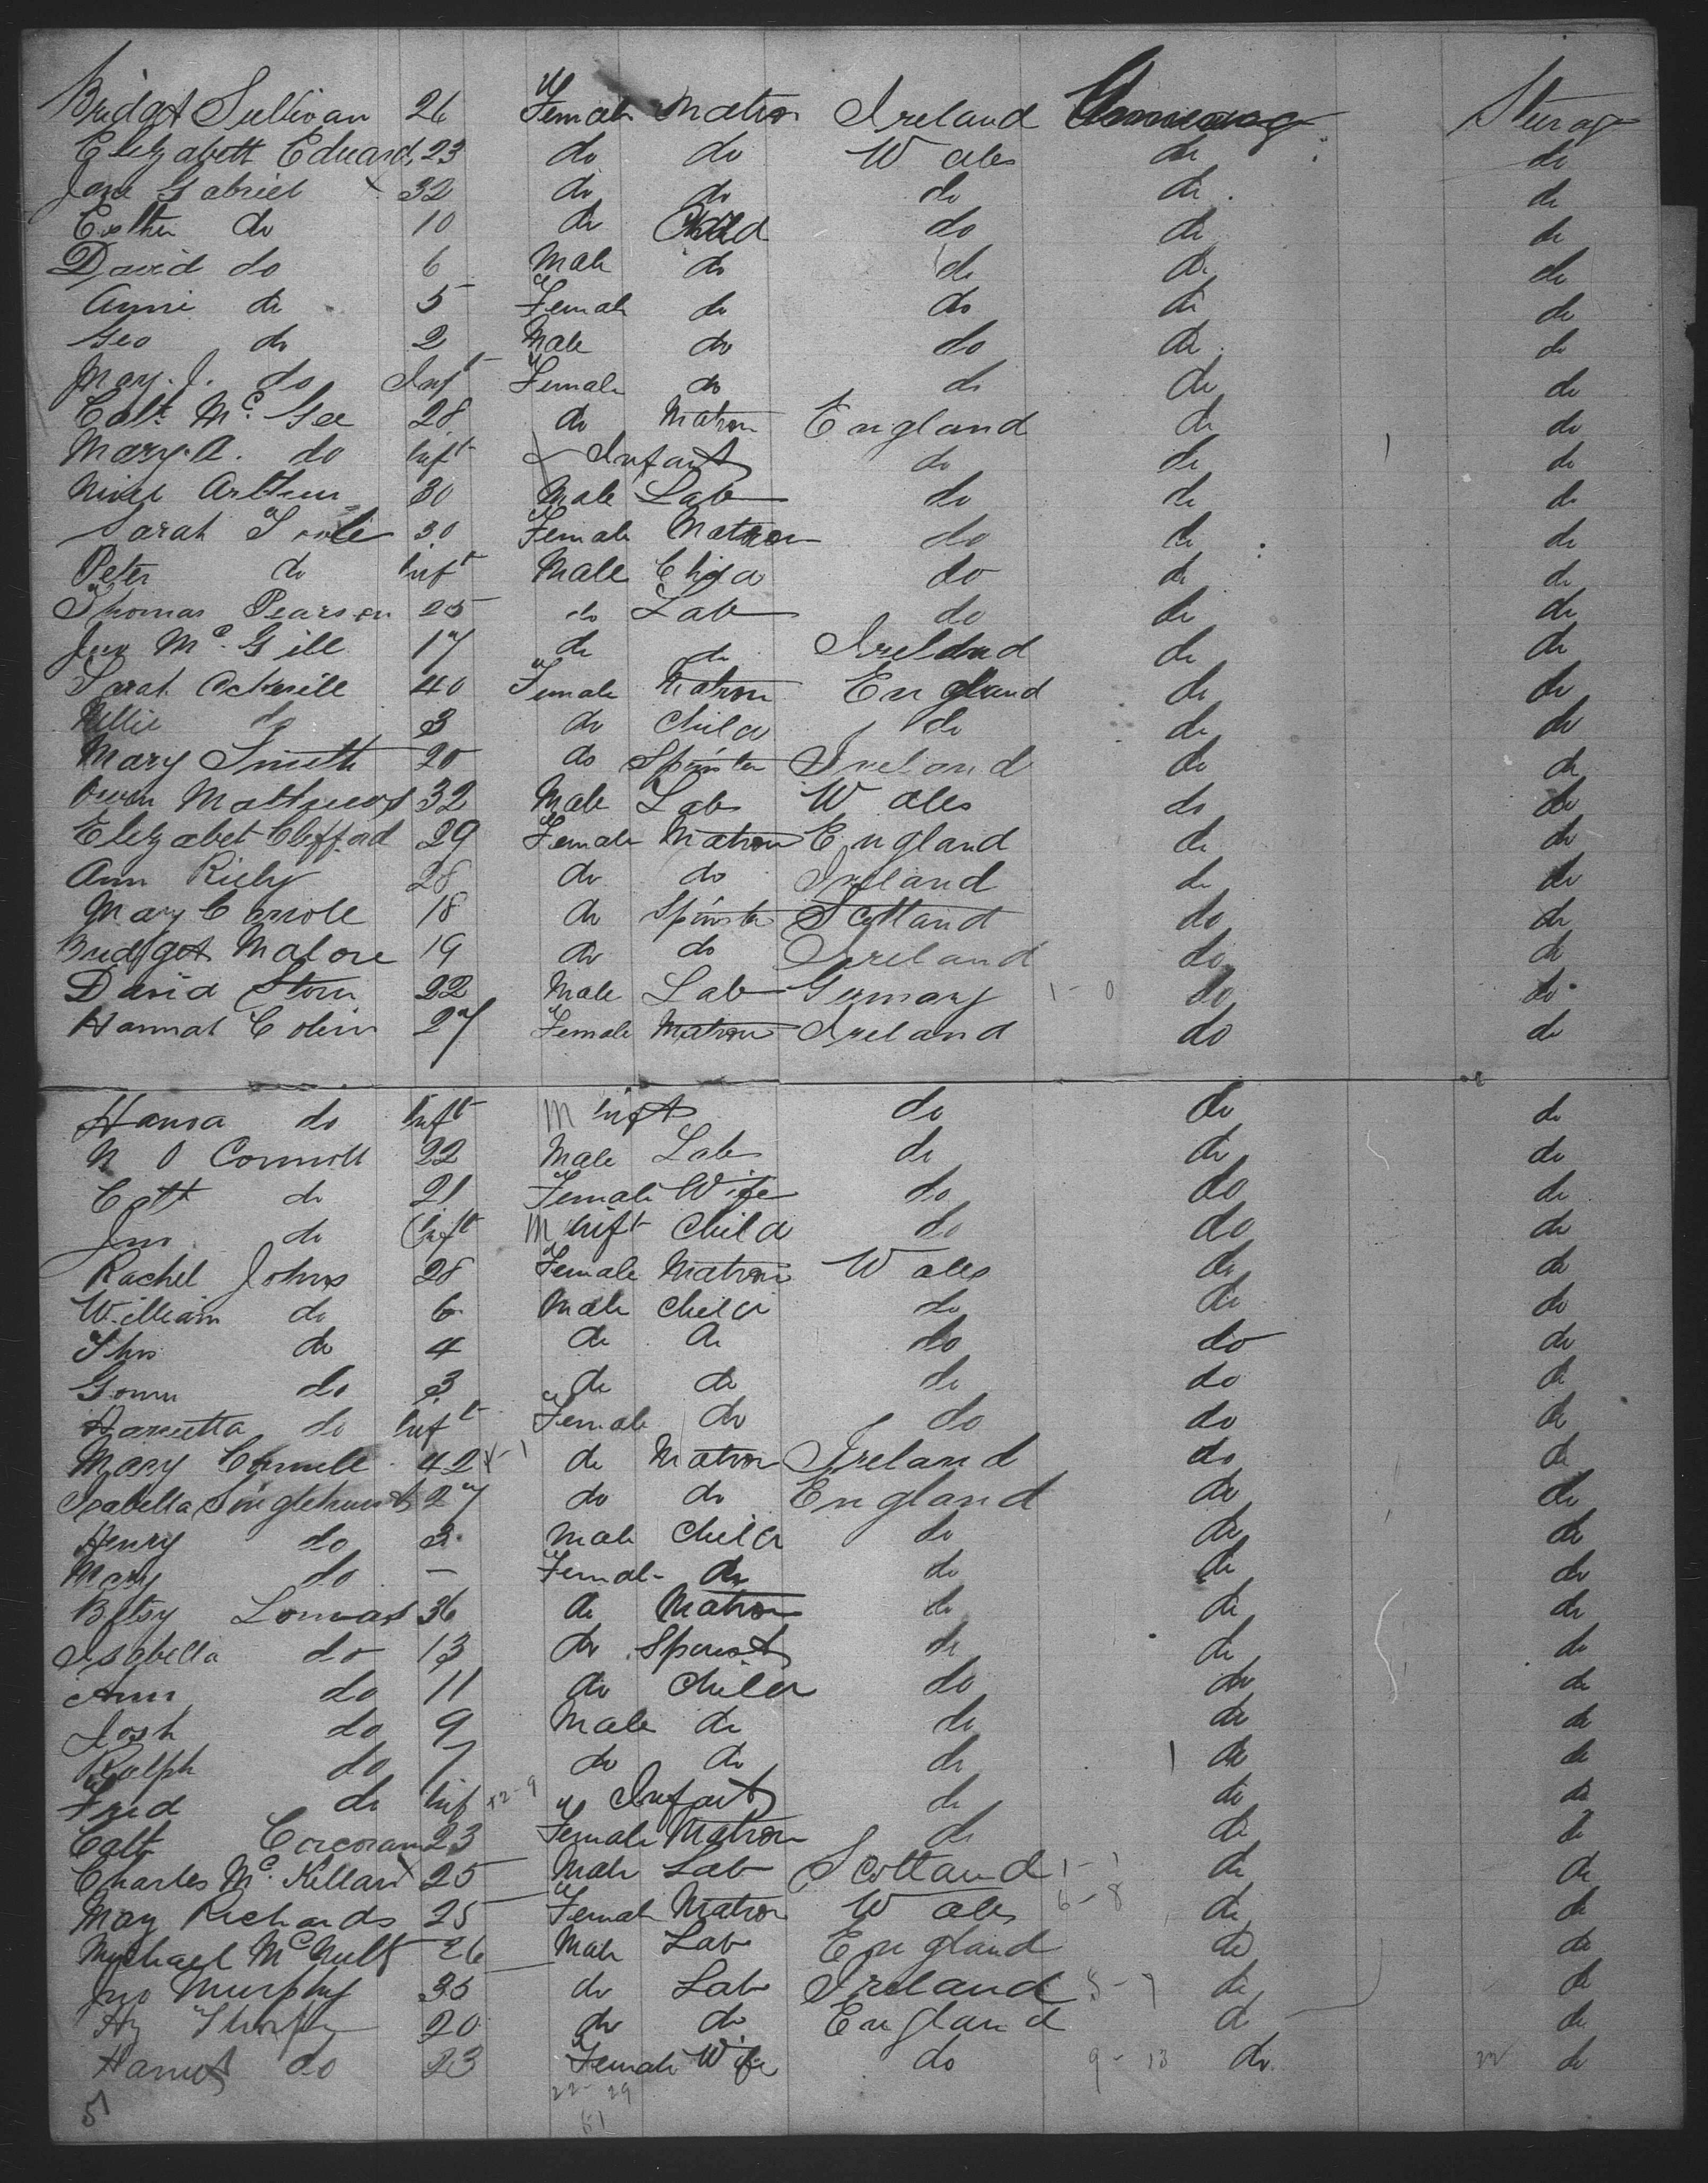 Bridget Sullivan 26 Female Matron Ireland Steerage
Elizabeth Edwards 23 do do Wales do do
Jane Gabriel x 32 do do do do do
Esther do 10 do Child do do do
David do 6 Male do do do do
Anni do 5 Female do do do do
Geo do 2 Male do do do do
Mary. J. do Inft Female do do do do
Cath Mc Gee 28 do Matron England do do
Mary. A. do Inft Infant do do do
Arthur 30 Male Lab do do do
Sarah 30 Female Matron do do do
Peter do Inft Male Child do do do
Thomas Pearson 25 do Lab do do do
Jno Mc Gill 17 do do Ireland do do
Sarah 40 Female Matron England do do
Nellie do 3 do Child do do do
Mary Smith 20 do Spinster Ireland do do
Owen Mathews 32 Male Lab Wales do do
Elizabet Clifford 29 Female Matron England do do
Ann Riely 28 do do Ireland do do
Mary Carroll 18 do Spinster Scotland do do
Bridget Malone 19 do do Ireland do do
David Stern 22 Male Lab Germany 1-0 do do
Hannah 27 Female Matron Ireland do do
do Inft M Inft do do do
22 Male Lab do do do
Cath do 21 Female Wife do do do
Jno do Inft M Inft Child do do do
Rachel Johns 28 Female Matron Wales do do
William do 6 Male Child do do do
Thos do 4 do do do do do
do 3 do do do do do
do Inft Female do do do do
Mary 42 do Matron Ireland do do
Isabella Singlehurst 27 do do England do do
Henry do 3 Male Child do do do
Mary do - Female do do do do
Betsy Lomas 36 do Matron do do do
Isabella do 13 do Spinst do do do
Ann do 11 do Child do do do
Josh do 9 Male do do do do
Ralph do 7 do do do do do
Fred do Inf 12-9 Infant do do do
Cath Corcoran 23 Female Matron do do do
Charles Mc Killan x 25 Male Lab Scotland 1-1 do do
May Richards 25 Female Matron Wales 6-8 do do
Michael Mc Nult 26 Male Lab England do do
Jno Murphy 35 do Lab Ireland 5-7 do do
Hy 20 do do England do do
do 23 Female Wife do 9-13 do do
22-29
51
51